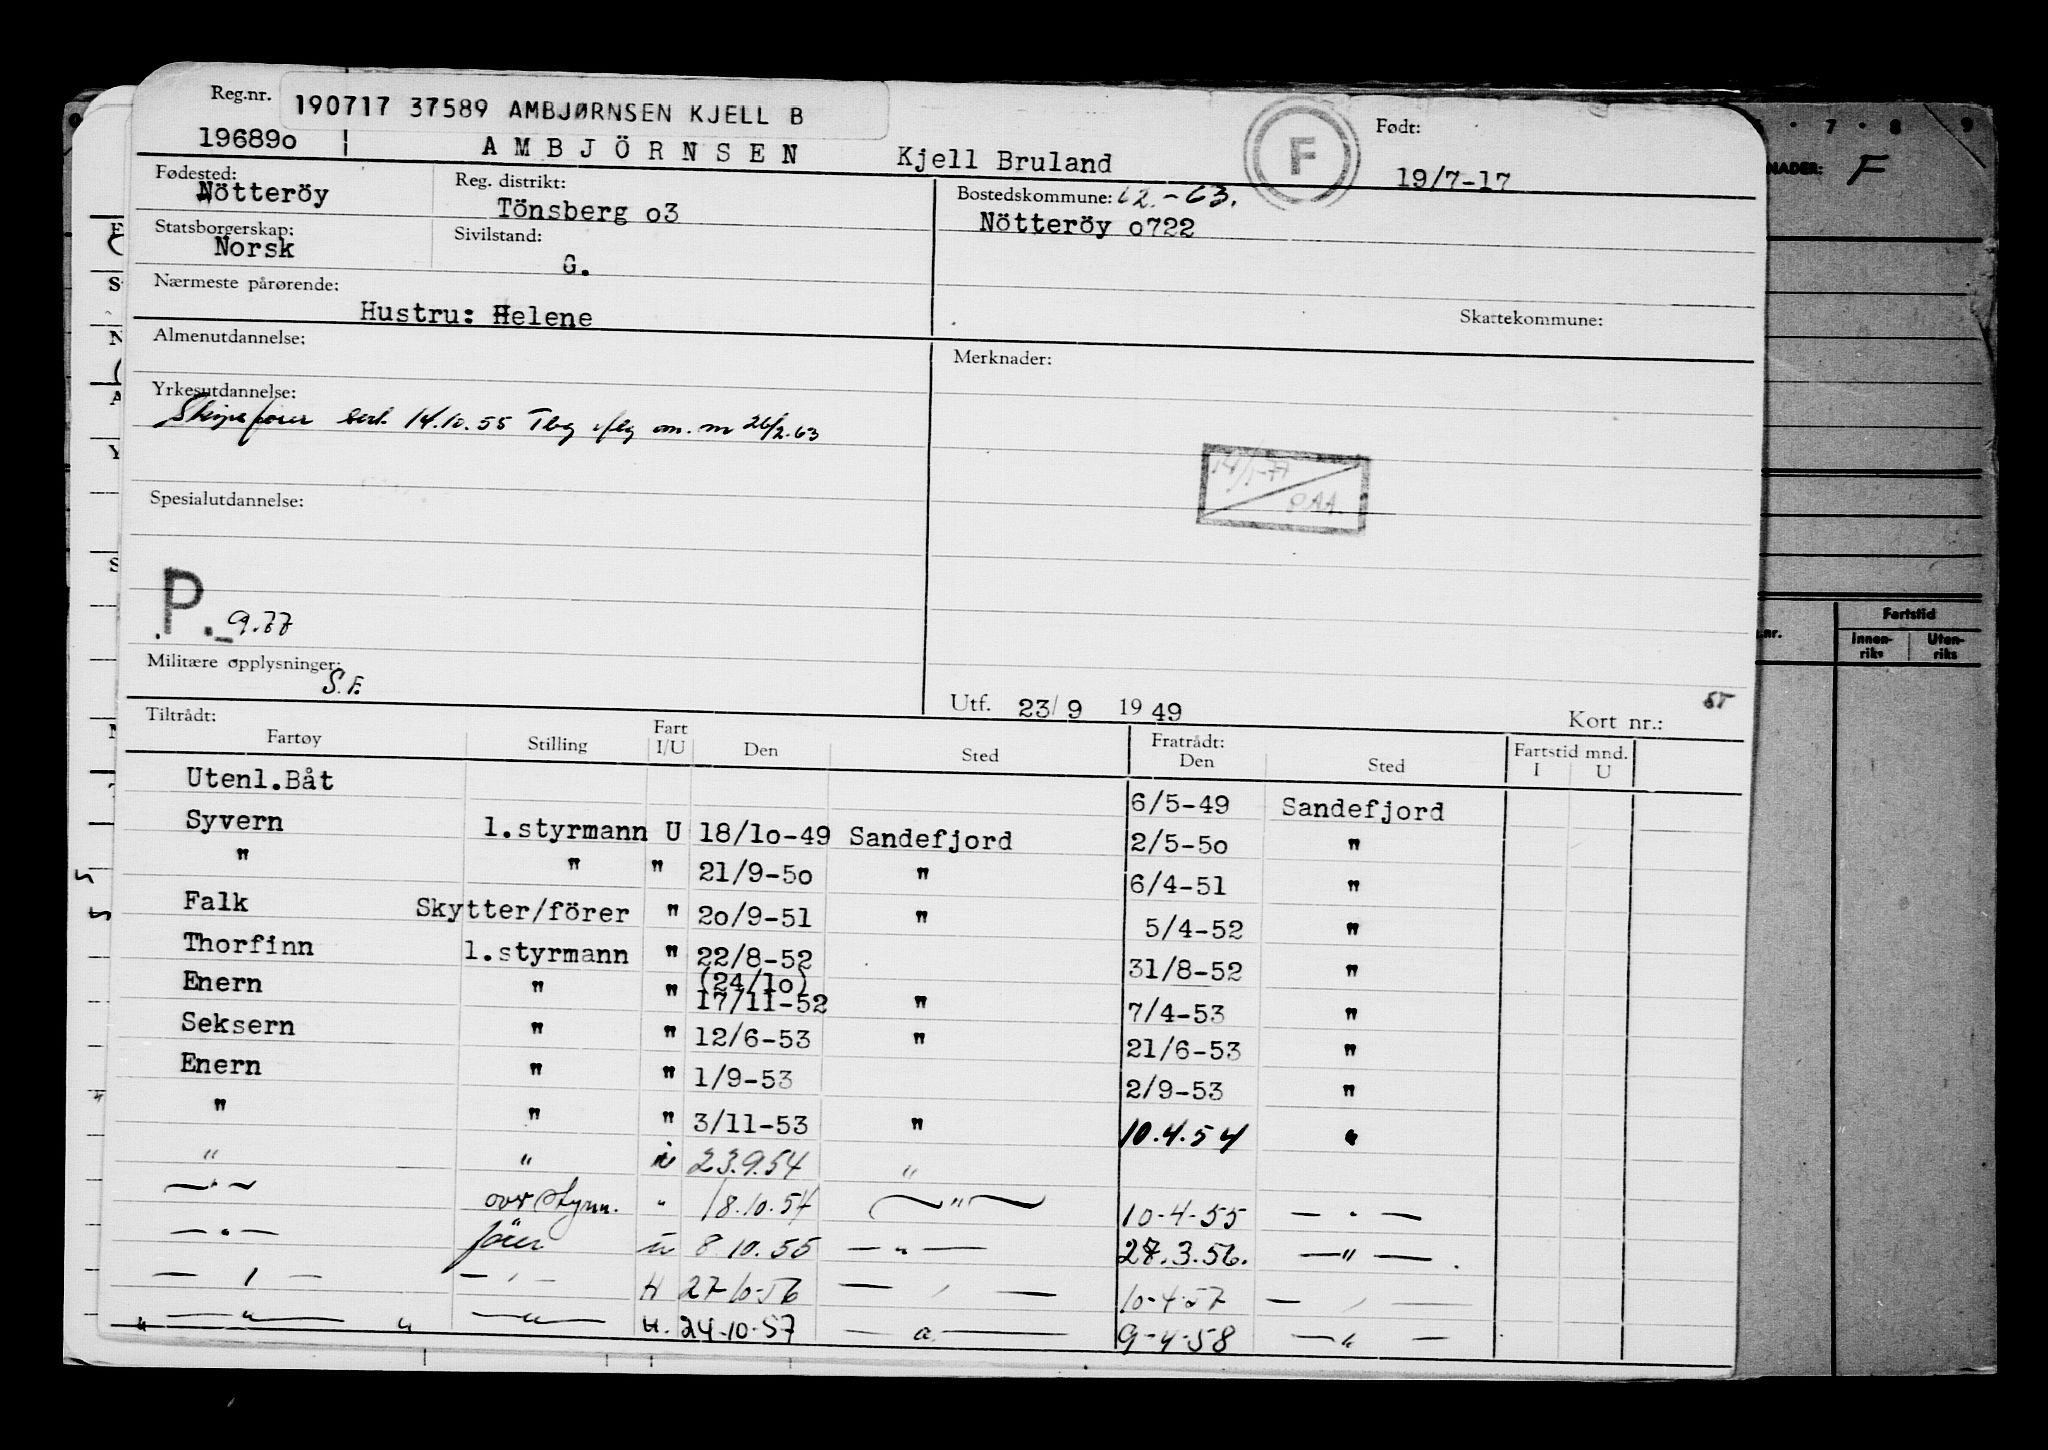 Reg.nr. 190717 37589 AMBJØRNSEN KJELL B
19689o AMBJÖRNSEN Kjell Bruland F Født: 19/7-17
Fødested: Nötteröy Reg. distrikt: Tönsberg o3 Bostedskommune: 62.-63. Nötteröy o722
Statsborgerskap: Norsk Sivilstand: G.
Nærmeste pårørende: Hustru: Helene Skattekommune:
Almenutdannelse: Merknader:
Yrkesutdannelse:
Skipsfører sert. 14.10.55 Tbg iflg an. m 26/2.63
14/1-77
OAA.
Spesialutdannelse:
P. 9.77
Militære opplysninger: S.F.
Utf. 23/9 1949 Kort nr.:
Tiltrådt: Fratrådt:
Fartøy Stilling Fart I/U Den Sted Den Sted Fartstid mnd. I U
Utenl.Båt 6/5-49 Sandefjord
Syvern 1.styrmann U 18/1o-49 Sandefjord 2/5-5o "
" " " 21/9-5o " 6/4-51 "
Falk Skytter/förer " 2o/9-51 " 5/4-52 "
Thorfinn 1.styrmann " 22/8-52 31/8-52 "
Enern " " (24/1o) 17/11-52 " 7/4-53 "
Seksern " " 12/6-53 " 21/6-53 "
Enern " " 1/9-53 2/9-53 "
" " " 3/11-53 " 10.4.54 "
" " u 23.9.54 "
—"— overstyrm. " 18.10.54 —"— 10-4-55 —"—
—"— förer u 8.10.55 —"— 27.3.56. —"—
—"— —"— U 27-10-56 —"— 10-4-57 —"—
—"— —"— U. 24-10-57 —"— 9-4-58 —"—
7 8 9
NADER: F
Fartstid
Innen-riks Uten-riks